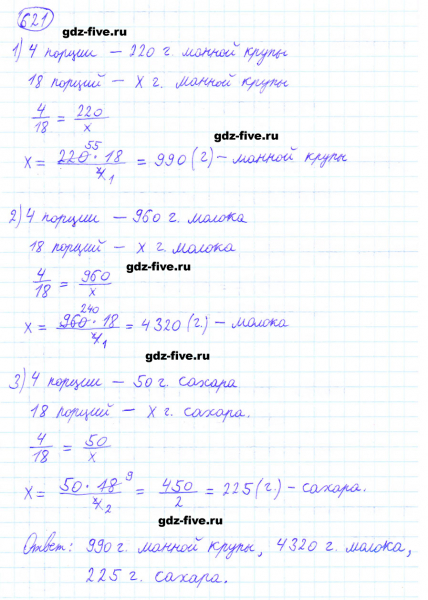 621
gdz-five.ru
1) 4 порции — 220 г. манной крупы
18 порций — x г. манной крупы
4/18 = 220/x
gdz-five.ru
x = 220 55 · 18 / 4 1 = 990 (г) – манной крупы
2) 4 порции — 960 г. молока
18 порций — x г. молока
gdz-five.ru
4/18 = 960/x
x = 960 240 · 18 / 4 1 = 4320 (г.) – молока
gdz-five.ru
3) 4 порции — 50 г. сахара
18 порций — x г. сахара.
4/18 = 50/x
gdz-five.ru
x = 50 · 18 9 / 4 2 = 450/2 = 225 (г.) – сахара.
gdz-five.ru
Ответ: 990 г. манной крупы, 4320 г. молока,
225 г. сахара.